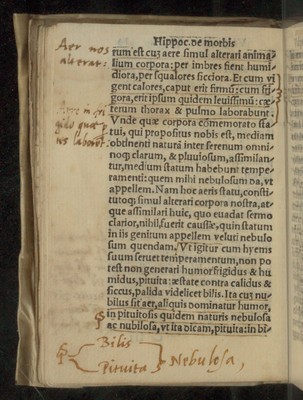 Hippoc. de morbis
Aer nos
alterat:
rum est cuʒ aere simul alterari anima-
lium corpora: per imbres fient humi
diora, per squalores sicciora. Et cum vi
gent calores, caput erit firmũ: cum fri
gora, erit ipsum quidem leuissimũ: cæ
terum thorax & pulmo laborabunt.
Vnde quæ corpora cõmemorato sta-
tui, qui propositus nobis est, mediam
obtinenti naturã inter serenum omni-
noq; clarum, & pluuiosum, assimilan
tur, medium statum habebunt tempe-
ramenti: quem nihi nebulosum oa, vt
appellem. Nam hoc aeris statu, consti-
tutoq; simul alterari corpora nostra, at-
que assimilari huic, quo euadat sermo
clarior, nihil fuerit causæ, quin statum
in iis genitum appellem veluti nebulo
sum quendam. Vt igitur cum hyems
suum seruet temperamentum, non po
test non generari humor frigidus & hu
midus, pituita: æstate contra calidus &
siccus, palida videlicet bilis. Ita cuʒ nu-
bilus sit aer, aliquis dominatur humor,
in pituitosis quidem naturis nebulosa
ac nubilosa, vt ita dicam, pituita: in bi-
Bilis
Pituita
Nebulosa,